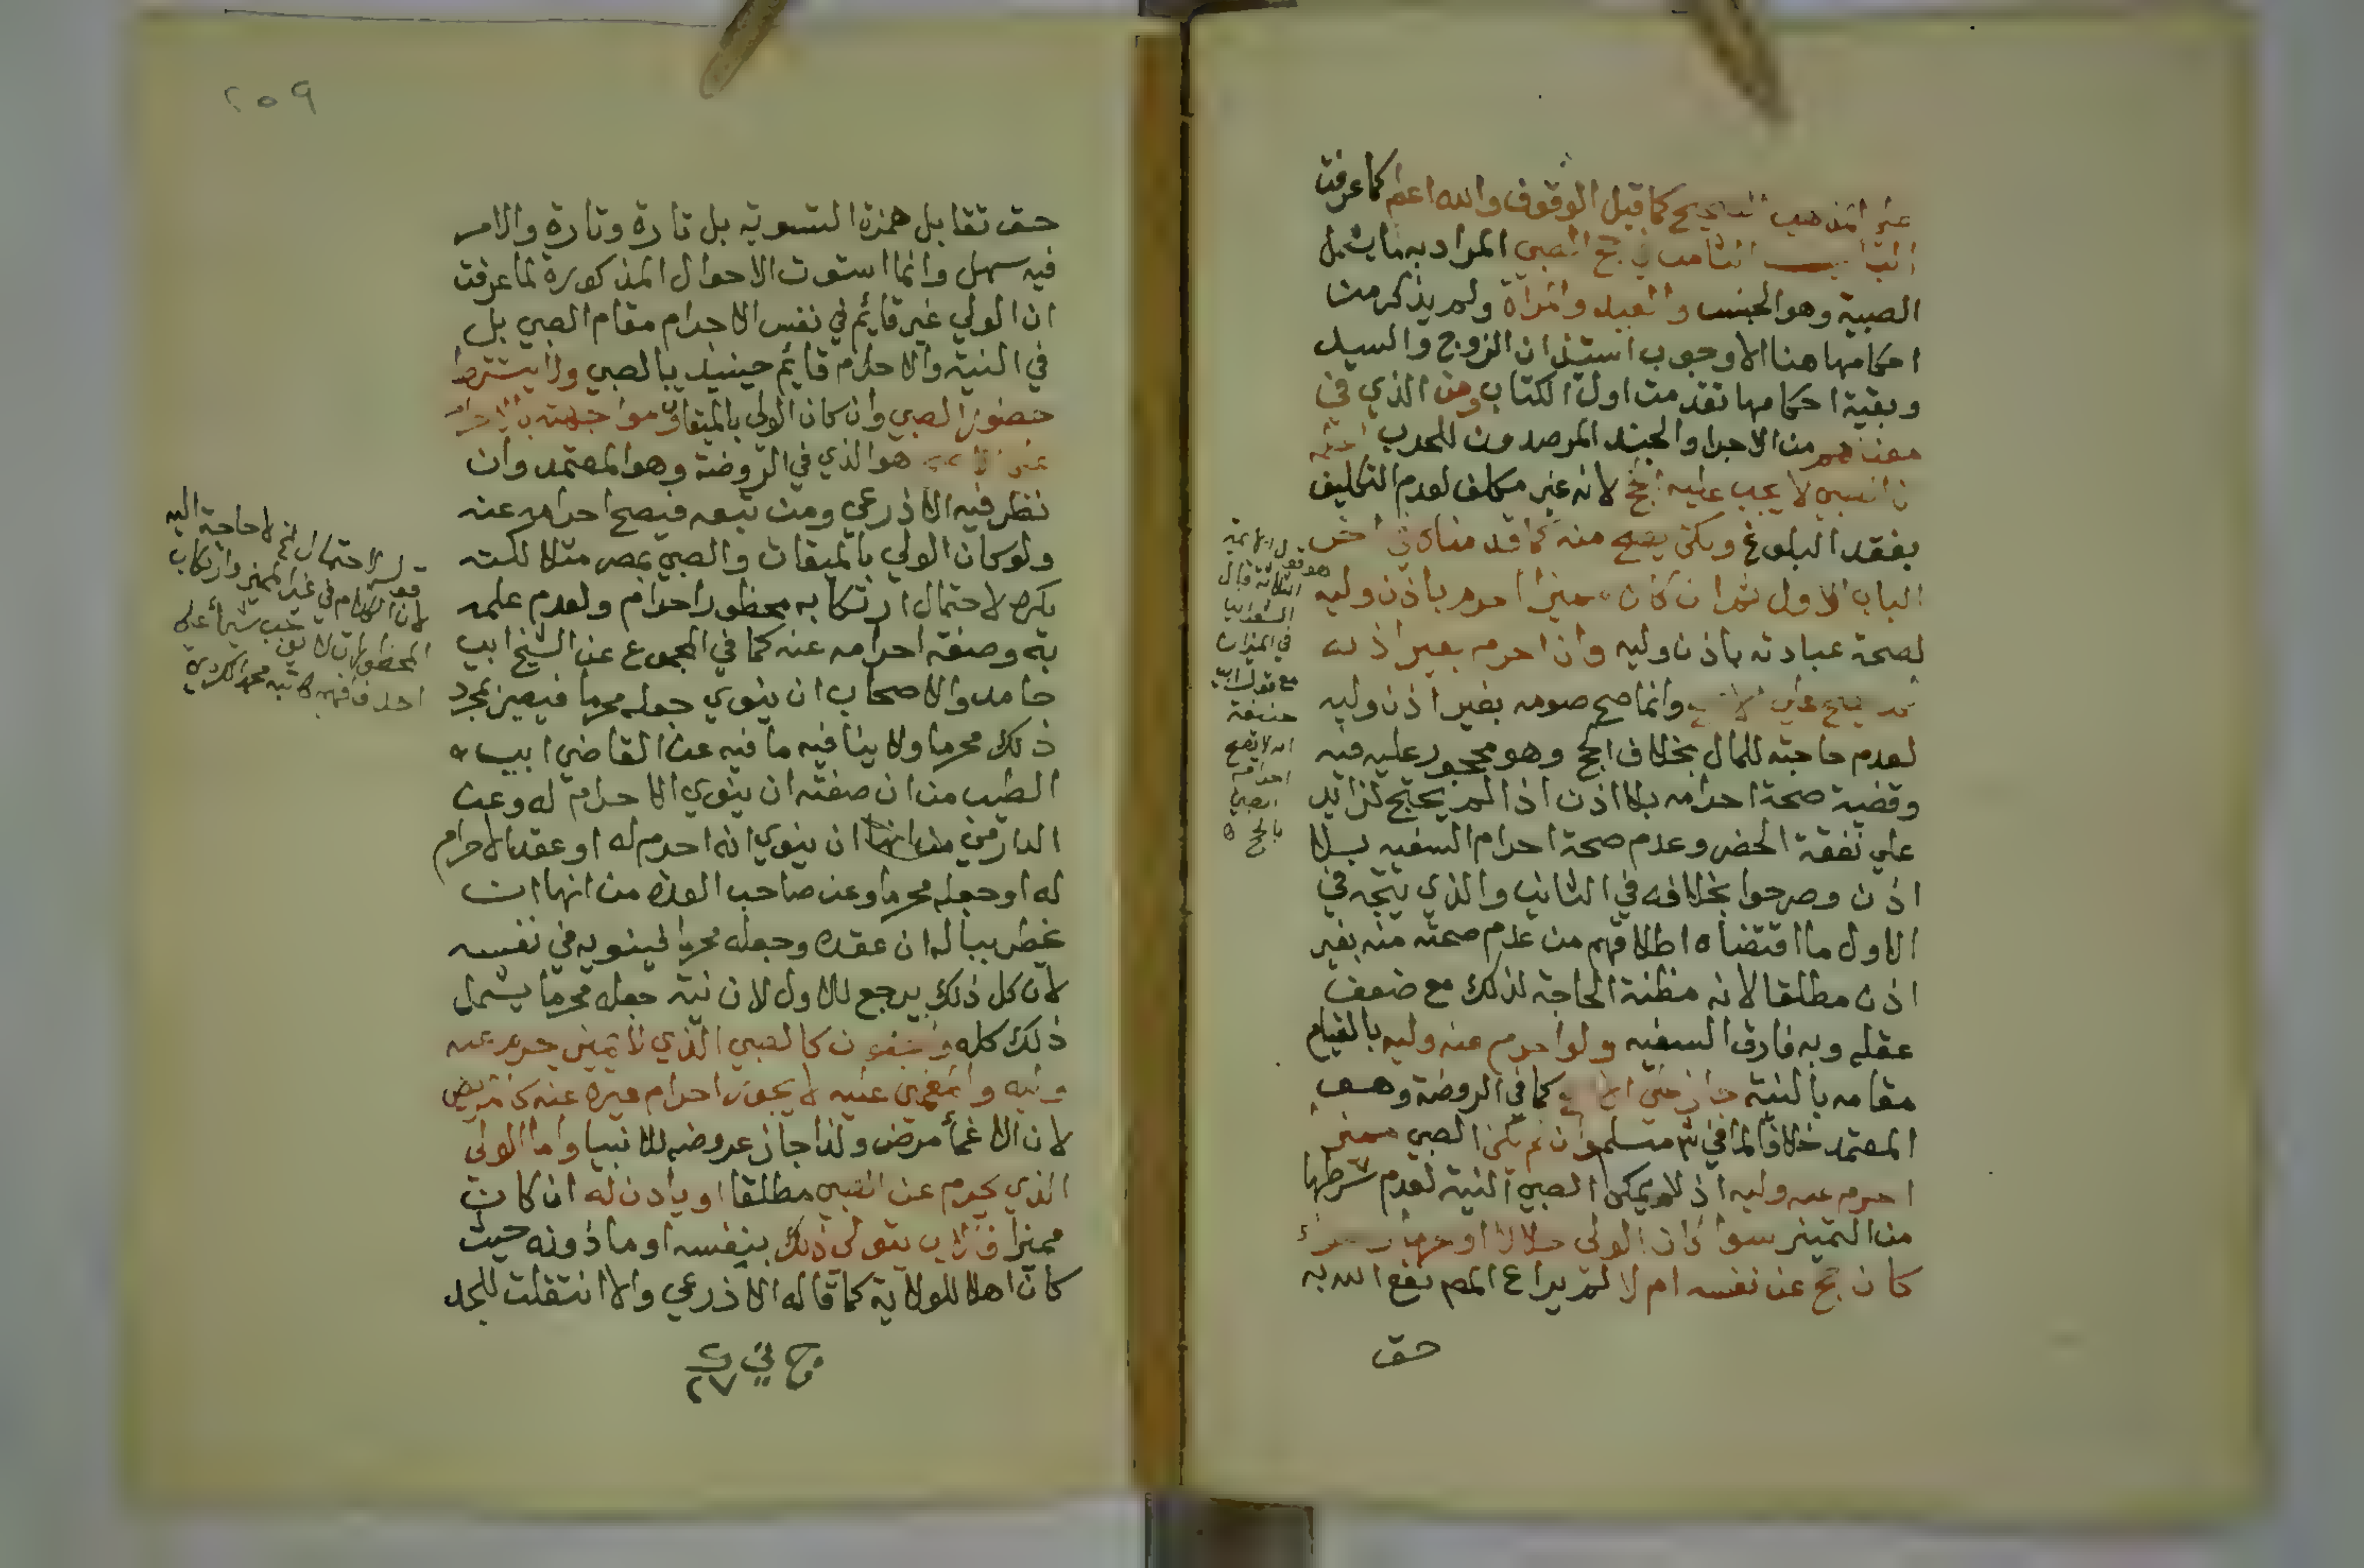 على المذهب الصحيح كما قبل الوقوف والله اعلم كما عرفت
الباب الثامن في حج الصبي المراد به ما يشمل
الصبية وهو الجنس والعبد والمراة ولم يذكر من
احكامها هنا الا وجوب استئذان الزوج والسيد
وبقية احكامها تقدمت اول الكتاب ومن الذي في
معناهم من الاجرا والجند المرصدون للحرب
ان الصبي لا يجب عليه الحج لانه غير مكلف لعدم التكليف
بفقد البلوغ ولكن يصح منه كما قدمناه في اخر
الباب الاول ثم ان كان مميزا احرم باذن وليه
لصحة عبادته باذن وليه وان احرم بغير اذنه
لم يصح على الاصح وانما صح صومه بغير اذن وليه
لعدم حاجته للمال بخلاف الحج وهو محجور عليه فيه
وقضية صحة احرامه بلا اذن اذا لم يحتج لزايد
علي نفقة الحضر وعدم صحة احرام السفيه بلا
اذن وصرحوا بخلافه في الثاني والذي يتجه في
الاول ما اقتضاه اطلاقهم من عدم صحته منه بغير
اذن مطلقا لانه مظنة الحاجة لذلك مع ضعف
عقله وبه فارق السفيه ولو احرم عنه وليه بالقيام
مقامه بالنية جاز على الاصح كما في الروضة وهو
المعتمد خلافا لما في شم مسلم وان لم يكن الصبي مميز
احرم عنه وليه اذ لا يمكن الصبي النية لعدم شرطها
من التمييز سواء كان الولي حلالا او محرما وسواء
كان حج عن نفسه ام لا لم يراع المص نفع الله به
حق
هو قول الايمة
الثلاثة قال
الشعراني
في الميزان
مع قول ابي
حنيفة
انه لا يصح
احرام
الصبي
بالحج ه
٢٥٩
حق تقابل همزة التسوية بل تارة وتارة والامر
فيه سهل وانما استوت الاحوال المذكورة لما عرفت
ان الولي غير قايم في نفس الاحرام مقام الصبي بل
في النية والاحرام قايم حينيد بالصبي ولا يشترط
حضور الصبي وان كان الولي بالميقات ومواجهته بالاحرام
على الاصح هو الذي في الروضة وهو المعتمد وان
نظر فيه الاذرعي ومن تبعه فيصح احرامه عنه
ولو كان الولي بالميقات والصبي بمصر مثلا لكنه
يكره لاحتمال ارتكابه محظور احرام ولعدم علمه
به وصفة احرامه عنه كما في المجموع عن الشيخ ابي
حامد والاصحاب ان ينوي جعله محرما فيصير بمجرد
ذلك محرما ولا ينافيه ما فيه عن القاضي ابي
الطيب من ان صفته ان ينوي الاحرام له وعن
الدارمي من انها ان ينوي انه احرم له او عقد الاحرام
له او جعله محرما وعن صاحب العدة من انها ان
يخطر بباله ان عقده وجعله محرما لينويه في نفسه
لان كل ذلك يرجع للاول لان نية جعله محرما يشمل
ذلك كله والمجنون كالصبي الذي لا يميز يحرم عنه
وليه والمغمي عليه لا يجوز احرام غيره عنه كالمريض
لان الاغمأ مرض ولذا جاز عروضه للانبيا واما الولي
الذي يحرم عن الصبي مطلقا او ياذن له ان كان
مميزا فالاب يتولى ذلك بنفسه او ماذونه حيث
كان اهلا للولاية كما قاله الاذرعي والا انتقلت للجد
قوله لاحتمال الخ لا حاجة اليه
لان الكلام في غير المميز وارتكاب
المحظورات لا يوجب شيأ على
احد فافهم كاتبه محمد الكردي